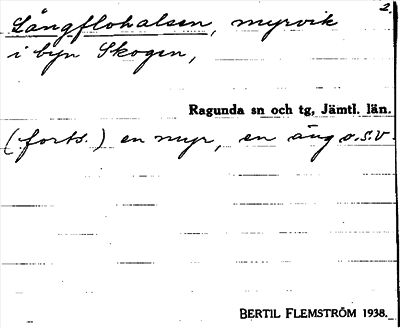 2.
Långflohalsen, myrvik
i byn Skogen,
Ragunda sn och tg, Jämtl. län.
(forts.) en myr, en äng o.s.v.
BERTIL FLEMSTRÖM 1938.